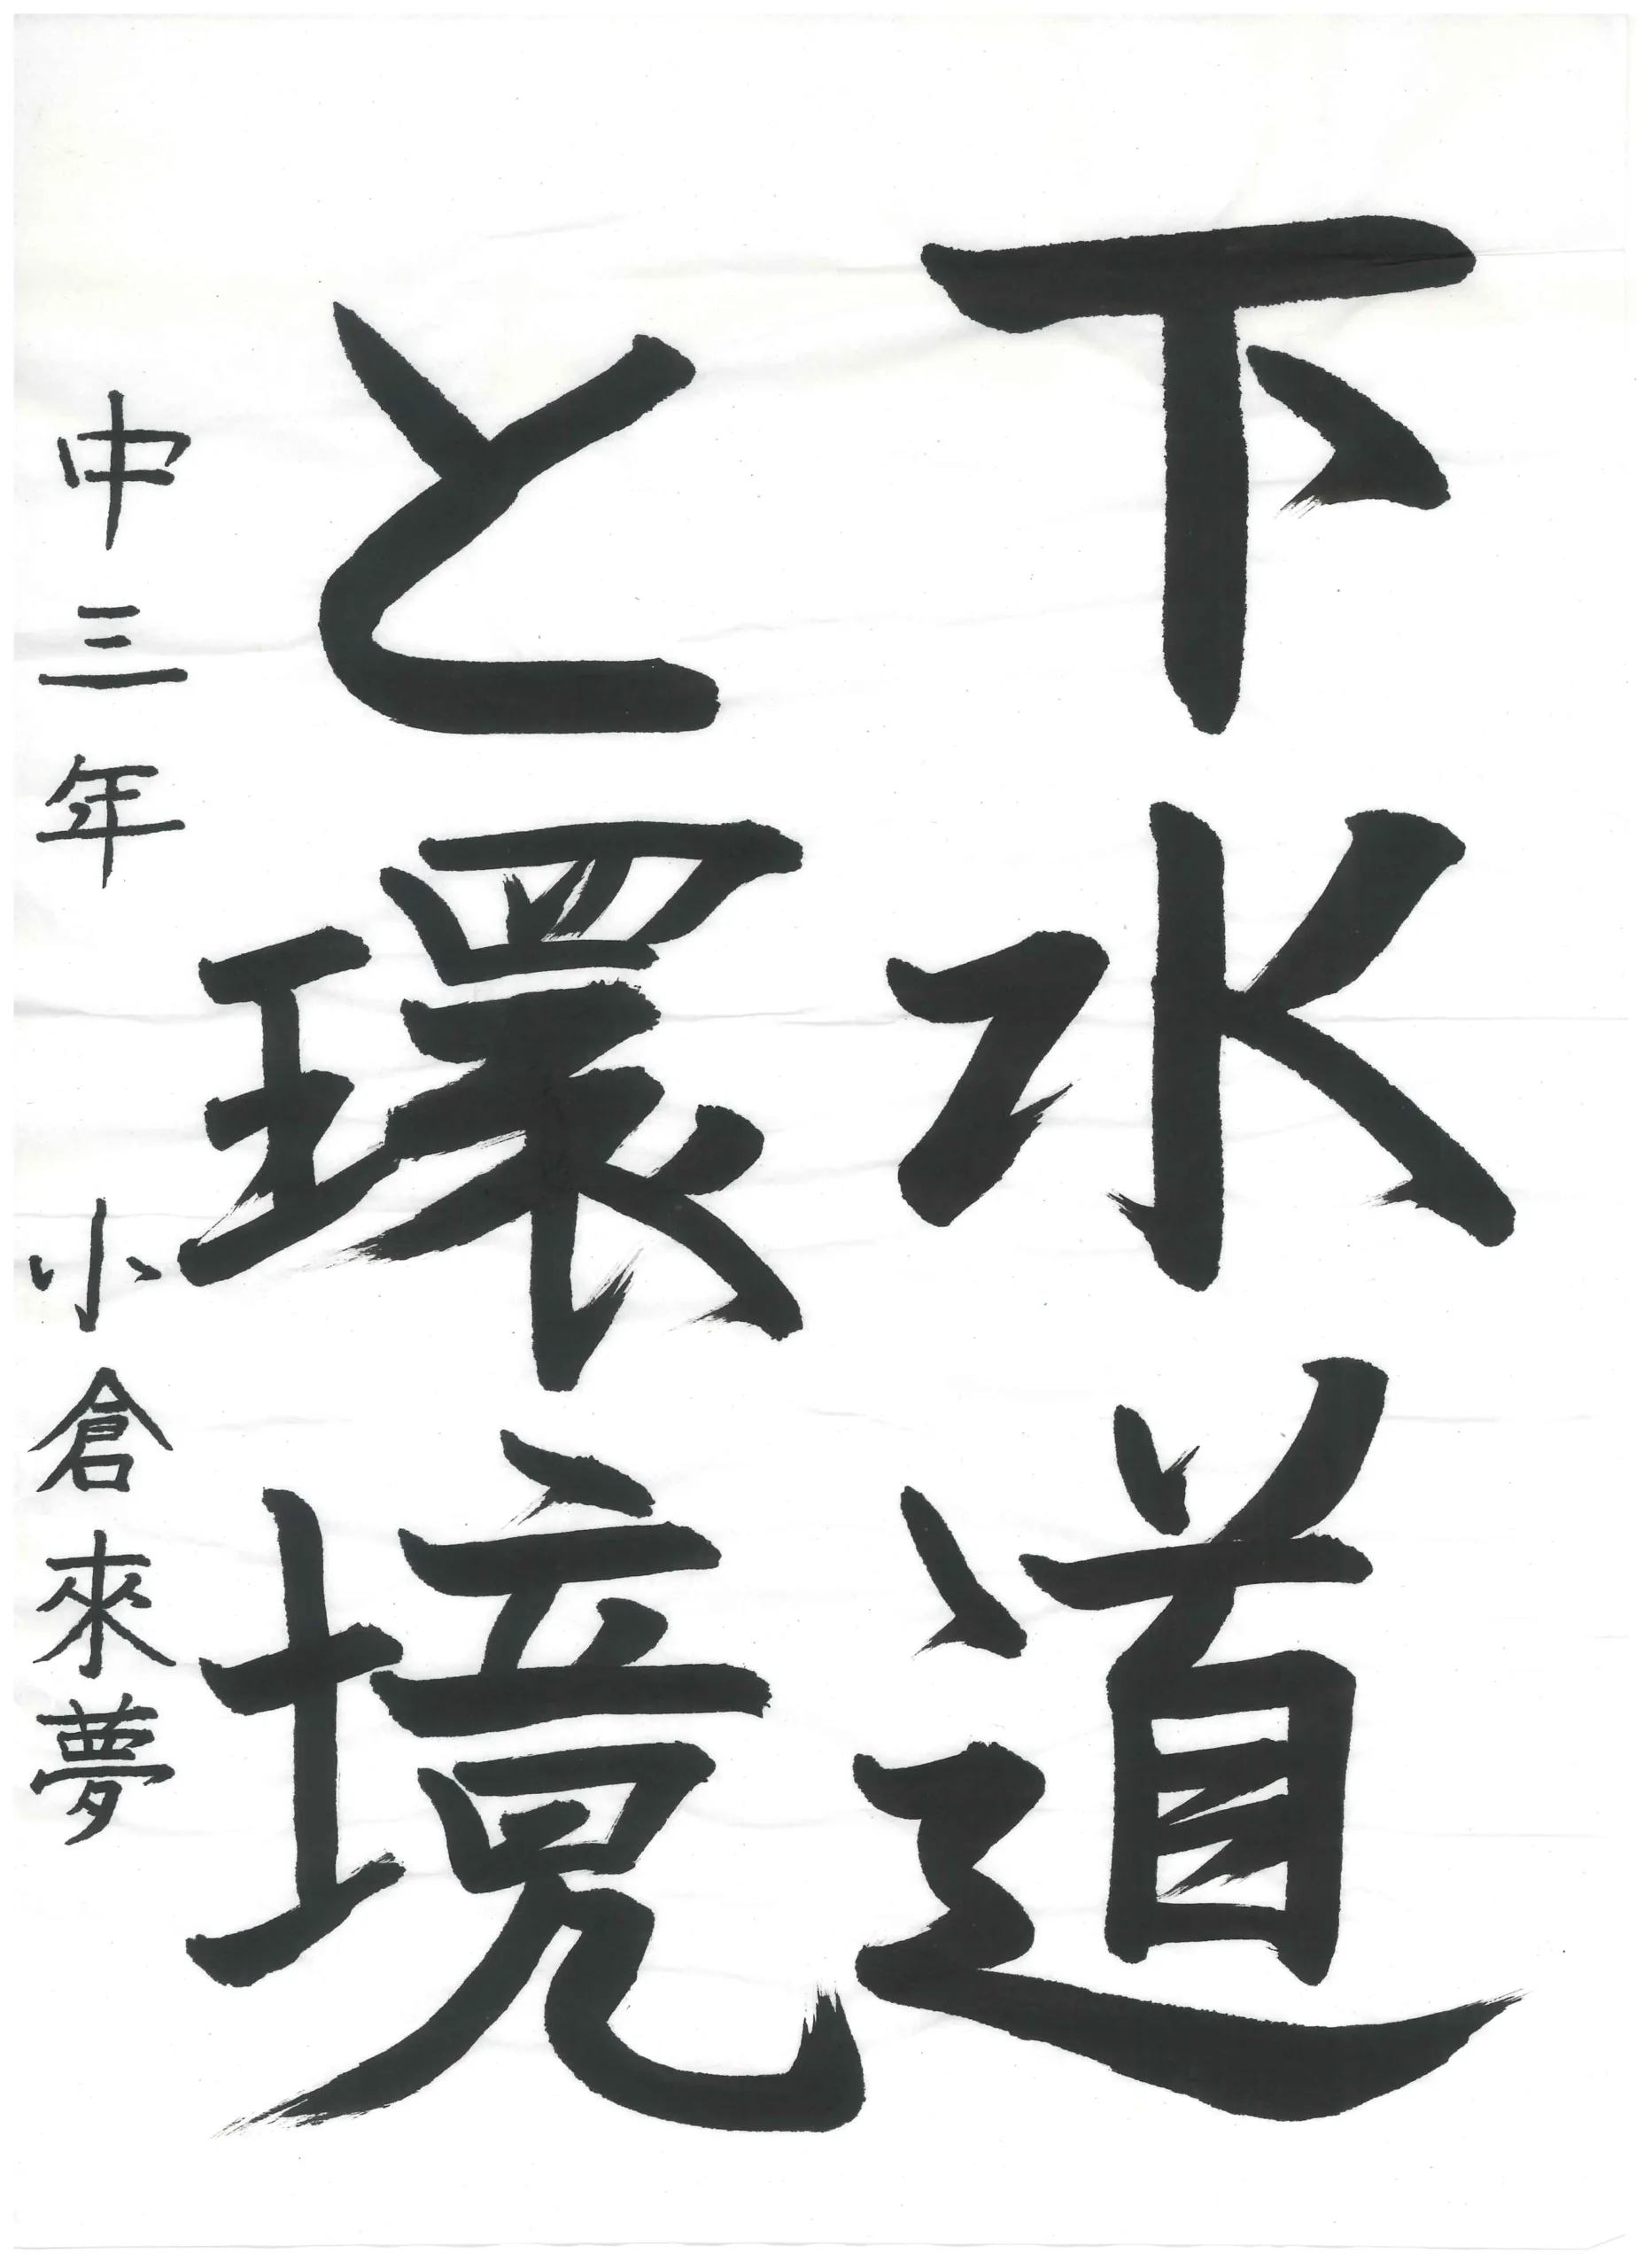 下水道
と環境
中三年 小倉來夢